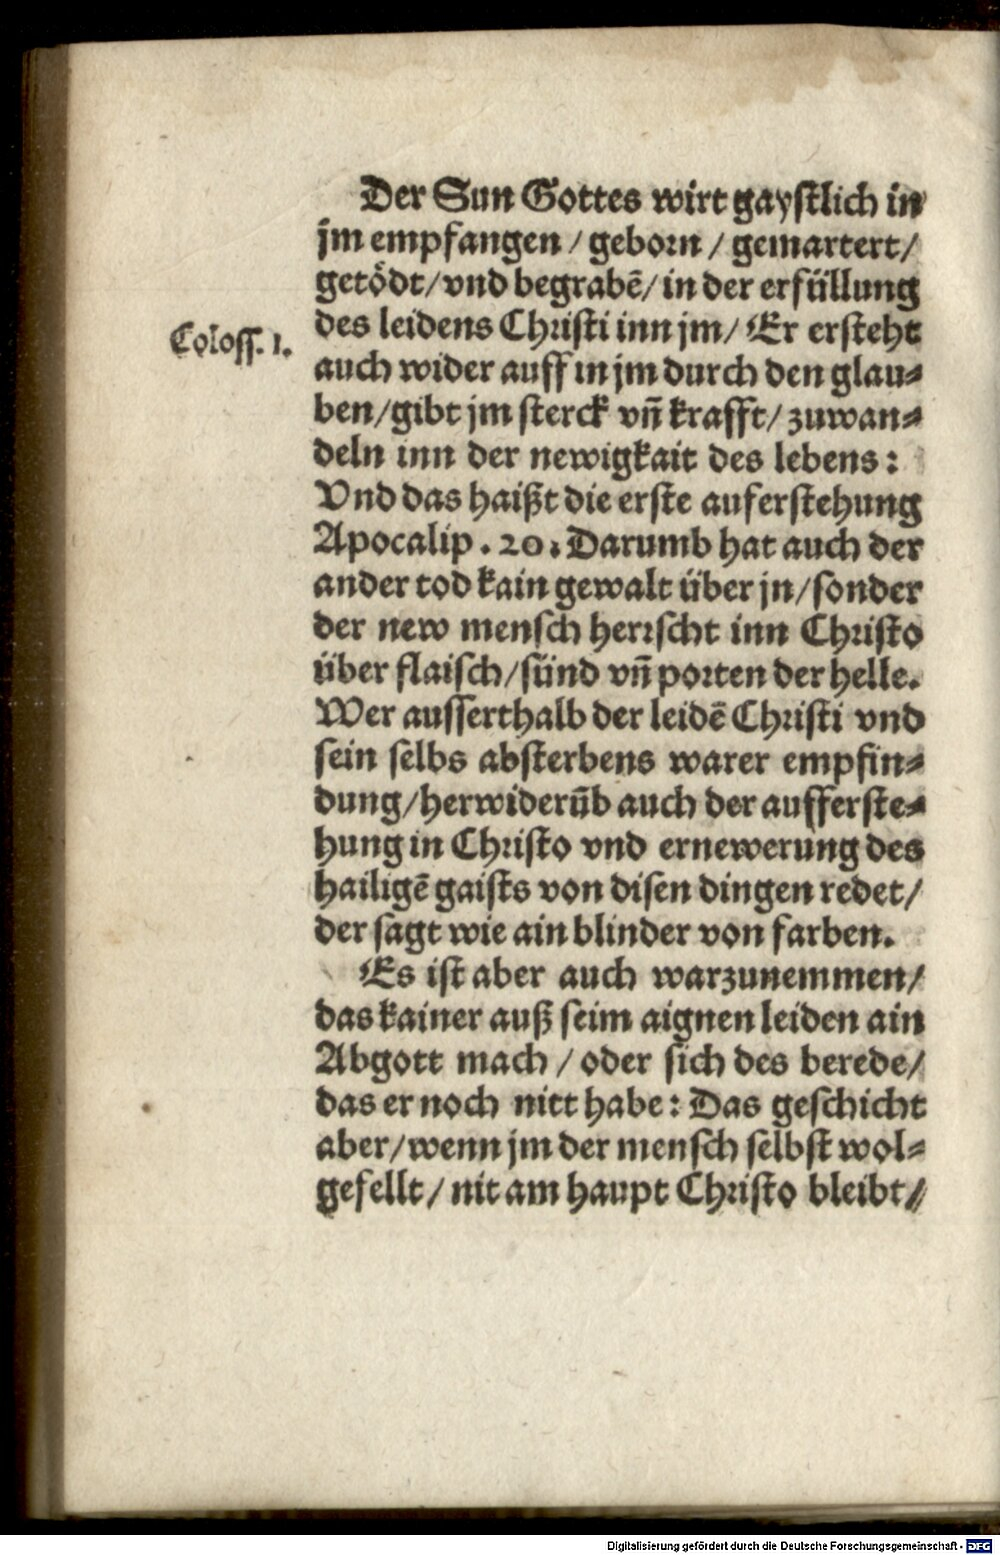 Der Sun Gottes wirt gaystlich in
jm empfangen / geborn / gemartert /
getödt / vnd begrabẽ / in der erfüllung
Coloss. 1.
des leidens Christi inn jm / Er ersteht
auch wider auff in jm durch den glau⸗
ben / gibt jm sterck vñ krafft / zuwan⸗
deln inn der newigkait des lebens :
Vnd das haißt die erste auferstehung
Apocalip . 20 . Darumb hat auch der
ander tod kain gewalt über jn / sonder
der new mensch herrscht inn Christo
über flaisch / sünd vñ porten der helle.
Wer ausserthalb der leidẽ Christi vnd
sein selbs absterbens warer empfin⸗
dung / herwiderũb auch der aufferste⸗
hung in Christo vnd ernewerung des
hailigẽ gaists von disen dingen redet /
der sagt wie ain blinder von farben.
Es ist aber auch warzunemmen /
das kainer auß seim aignen leiden ain
Abgott mach / oder sich des berede /
das er noch nitt habe : Das geschicht
aber / wenn jm der mensch selbst wol⸗
gefellt / nit am haupt Christo bleibt //
Digitalisierung gefördert durch die Deutsche Forschungsgemeinschaft - DFG